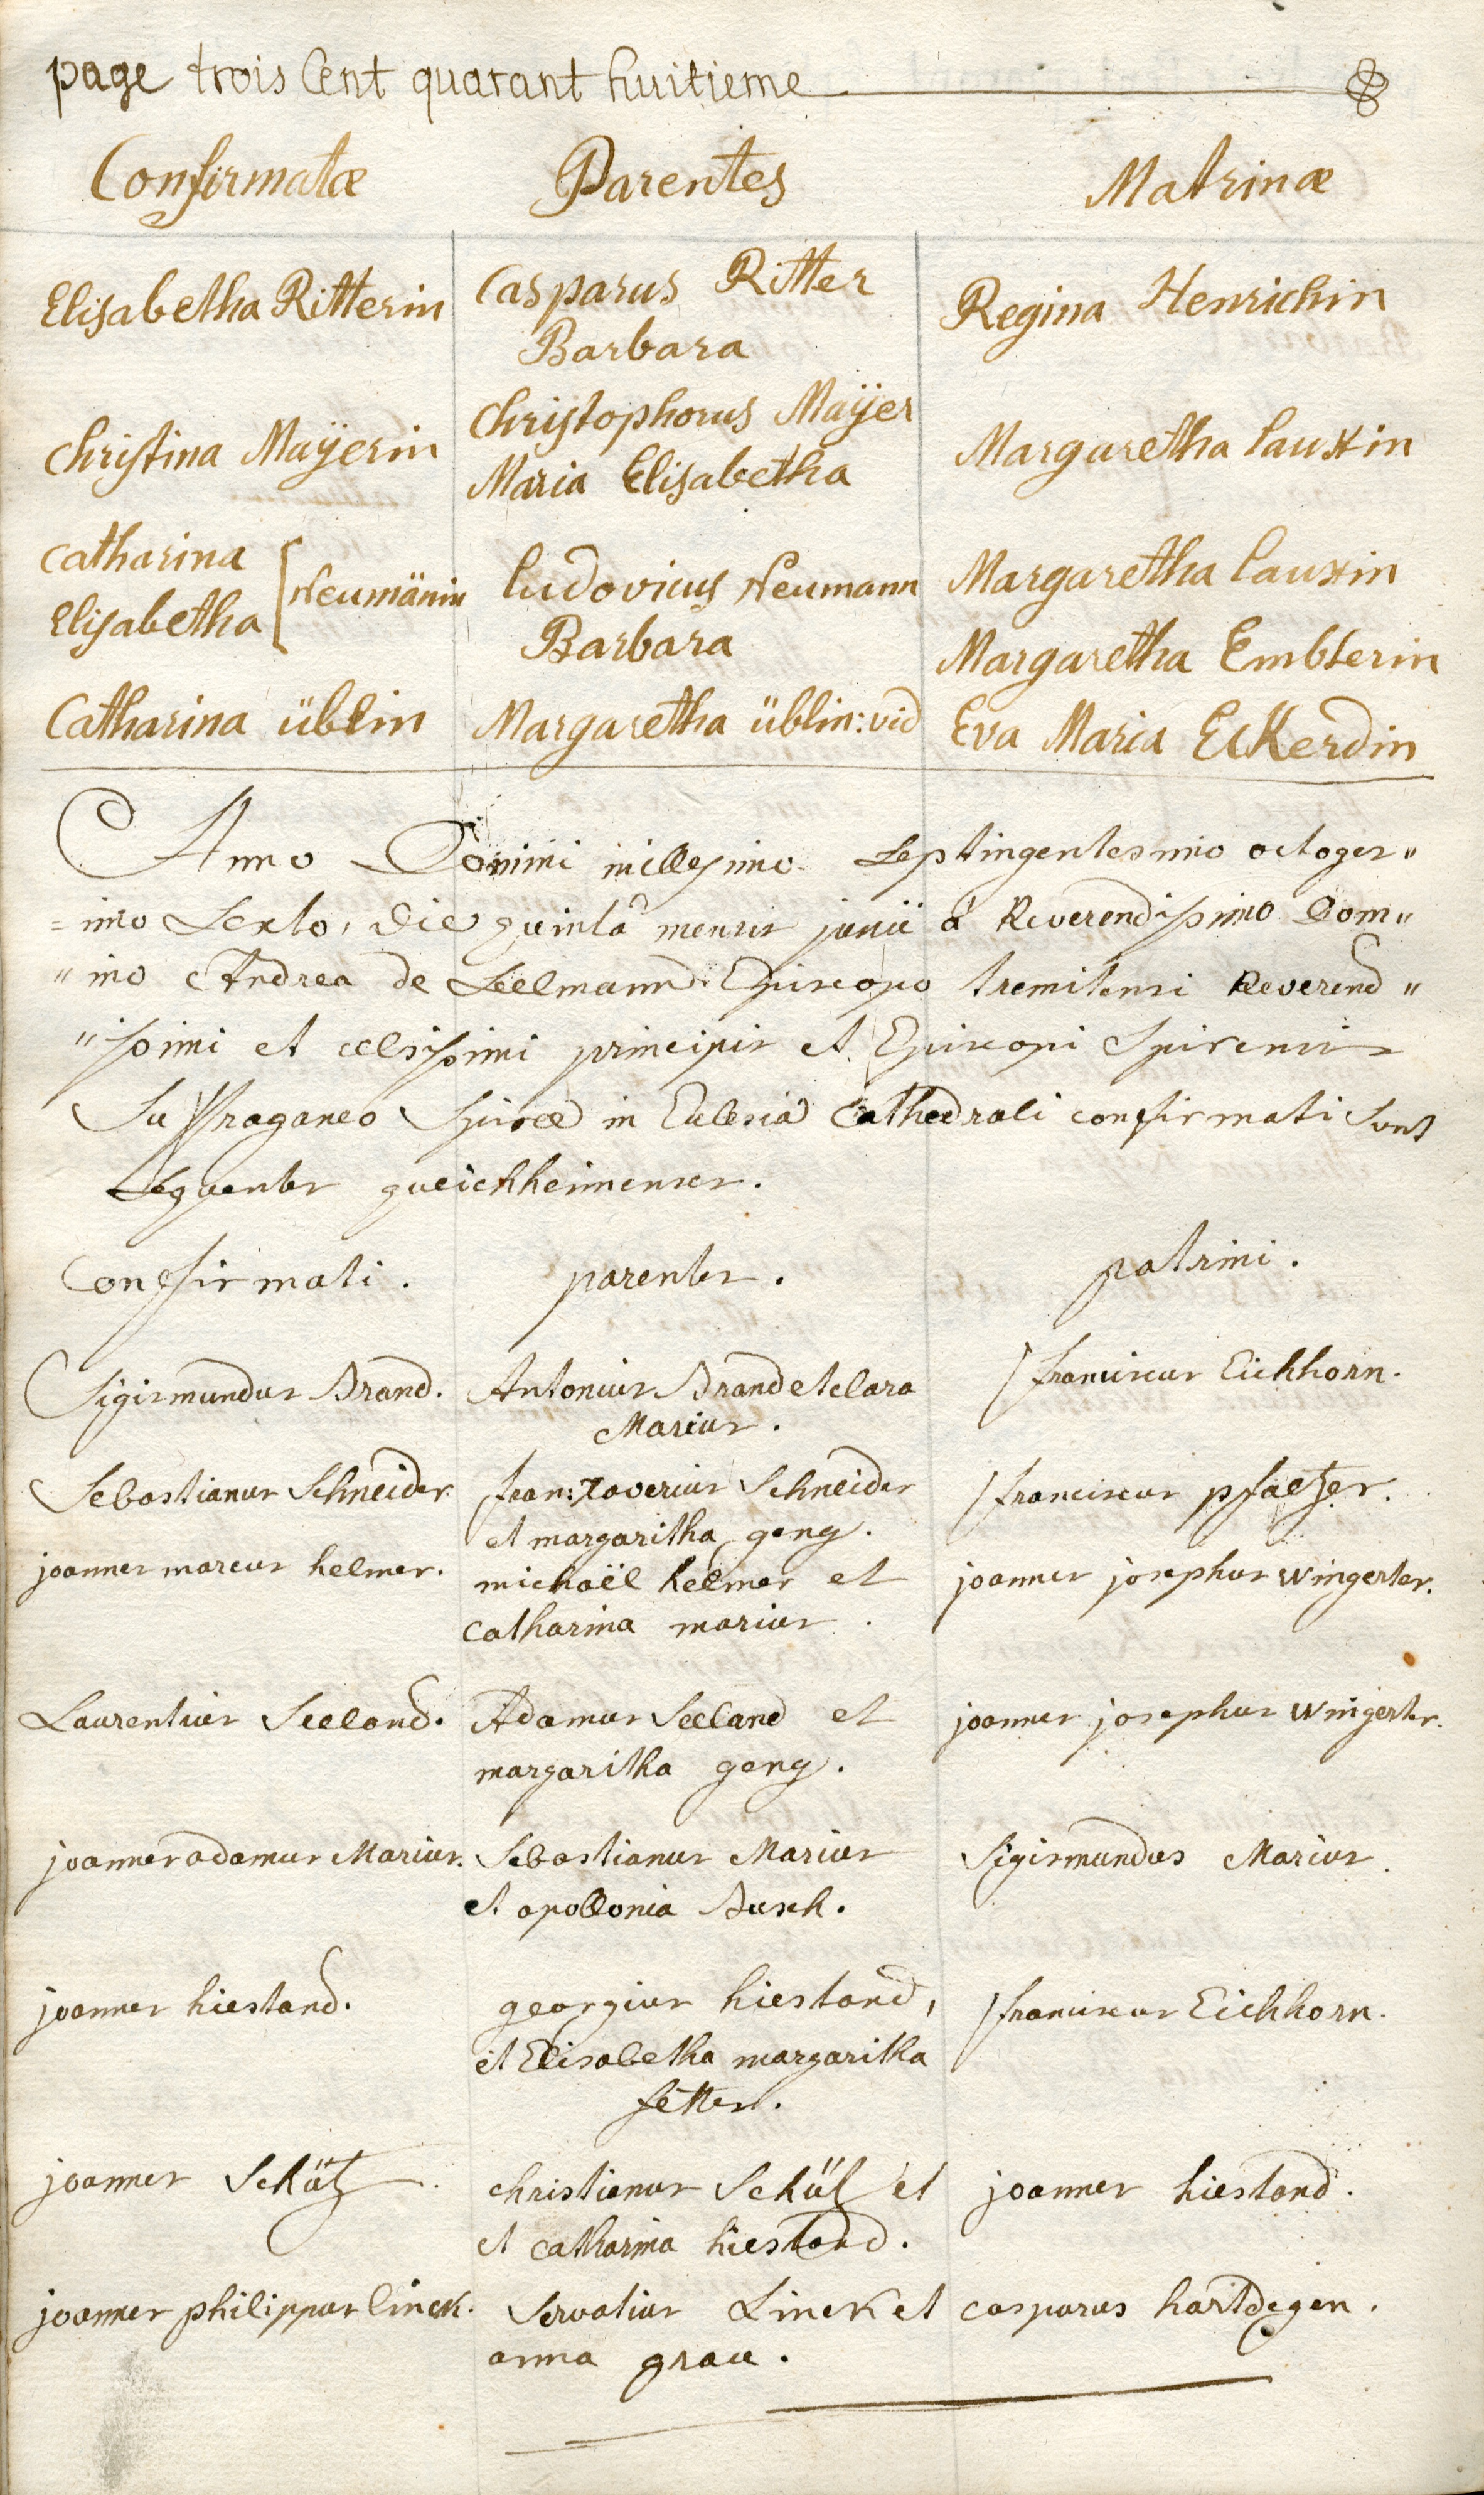 page trois Cent quarant huitieme
Confirmatæ Parentes Matrinæ
Elisabetha Ritterin Casparus Ritter Regina Henrichin
Barbara
Christina Maÿerin Christophorus Maÿer Margaretha Lauxin
Maria Elisabetha
Catharina
Elisabetha [Neumänin Ludovicus Neumann Margaretha Lauxin
Barbara Margaretha Emblerin
Catharina üblin Margaretha üblin: vid Eva Maria Eckerdin
Anno Domini millesimo Septingentesimo octoges"
=imo Sexto, die quintâ mensis junii à Reverendissimo Dom"
"ino Andrea de Seelmann Episcopo tremitensi Reverend"
"issimi et celsissimi principis et Episcopi Spirensis
Suffraganeo Spiræ in Eclesiâ Cathedrali confirmati sunt
Sequentes queichheimenses.
Confirmati. parentes. patrini.
Sigismundus Brand. Antonius Brand et clara franciscus Eichhorn.
Marius.
Sebastianus Schneider. fran: Xaverius Schneider franciscus pfaetzer.
et margaritha geng.
joannes marcus helmer. michaël helmer et joannes josephus Wingerter.
Catharina marius.
Laurentius Seeland. Adamus Seeland et joannes josephus Wingerter.
margaritha geng.
joannes adamus Marius. Sebastianus Marius Sigismundus Marius.
et apollonia Busch.
joannes hiestand. georgius hiestand, franciscus Eichhorn.
et Elisabetha margaritha
fetter.
joannes Schütz. christianus Schütz et joannes hiestand.
et catharina hiestand.
joannes philippus linck. Servatius Linck et casparus hartdegen.
anna grau.